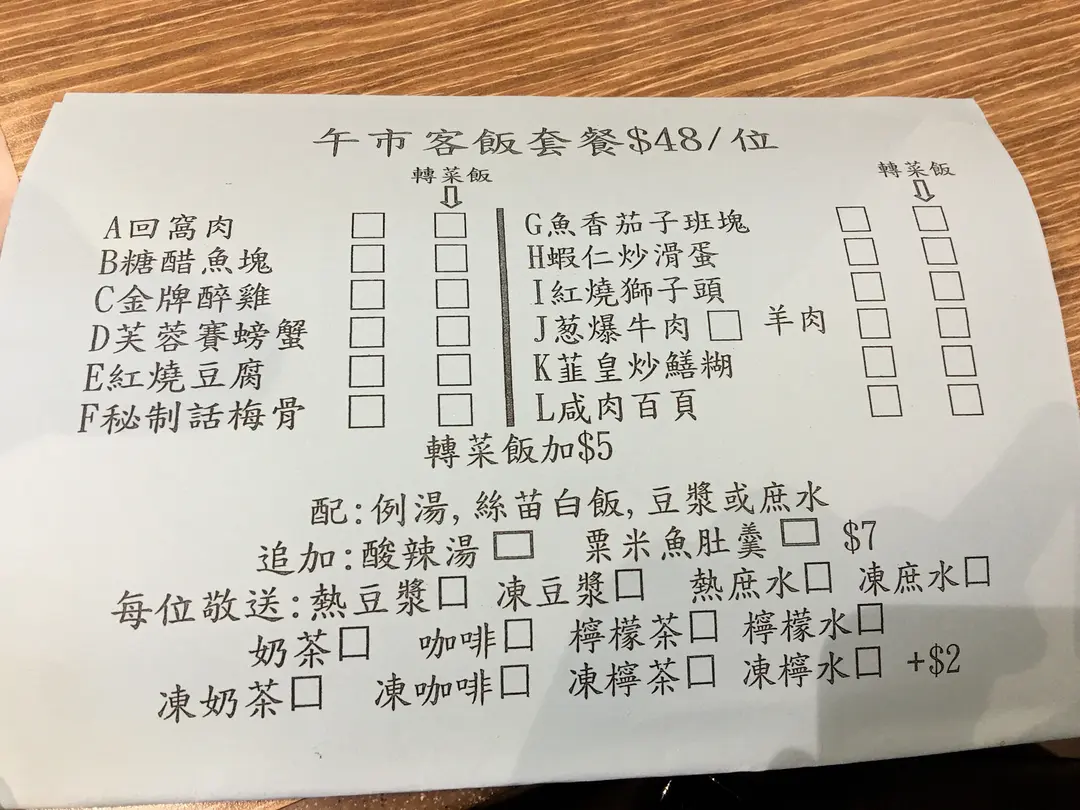 午市客飯套餐$48/位
轉菜飯 轉菜飯
A回窩肉
B糖醋魚塊
C金牌醉雞
D芙蓉賽螃蟹
E紅燒豆腐
F秘制話梅骨
G魚香茄子班塊
H蝦仁炒滑蛋
I紅燒獅子頭
J葱爆牛肉 □ 羊肉
K韮皇炒鱔糊
L咸肉百頁
轉菜飯加$5
配:例湯,絲苗白飯,豆漿或庶水
追加:酸辣湯□ 粟米魚肚羹□ $7
每位敬送:熱豆漿□ 凍豆漿□ 熱庶水□ 凍庶水□
奶茶□ 咖啡□ 檸檬茶□ 檸檬水□
凍奶茶□ 凍咖啡□ 凍檸茶□ 凍檸水□ +$2